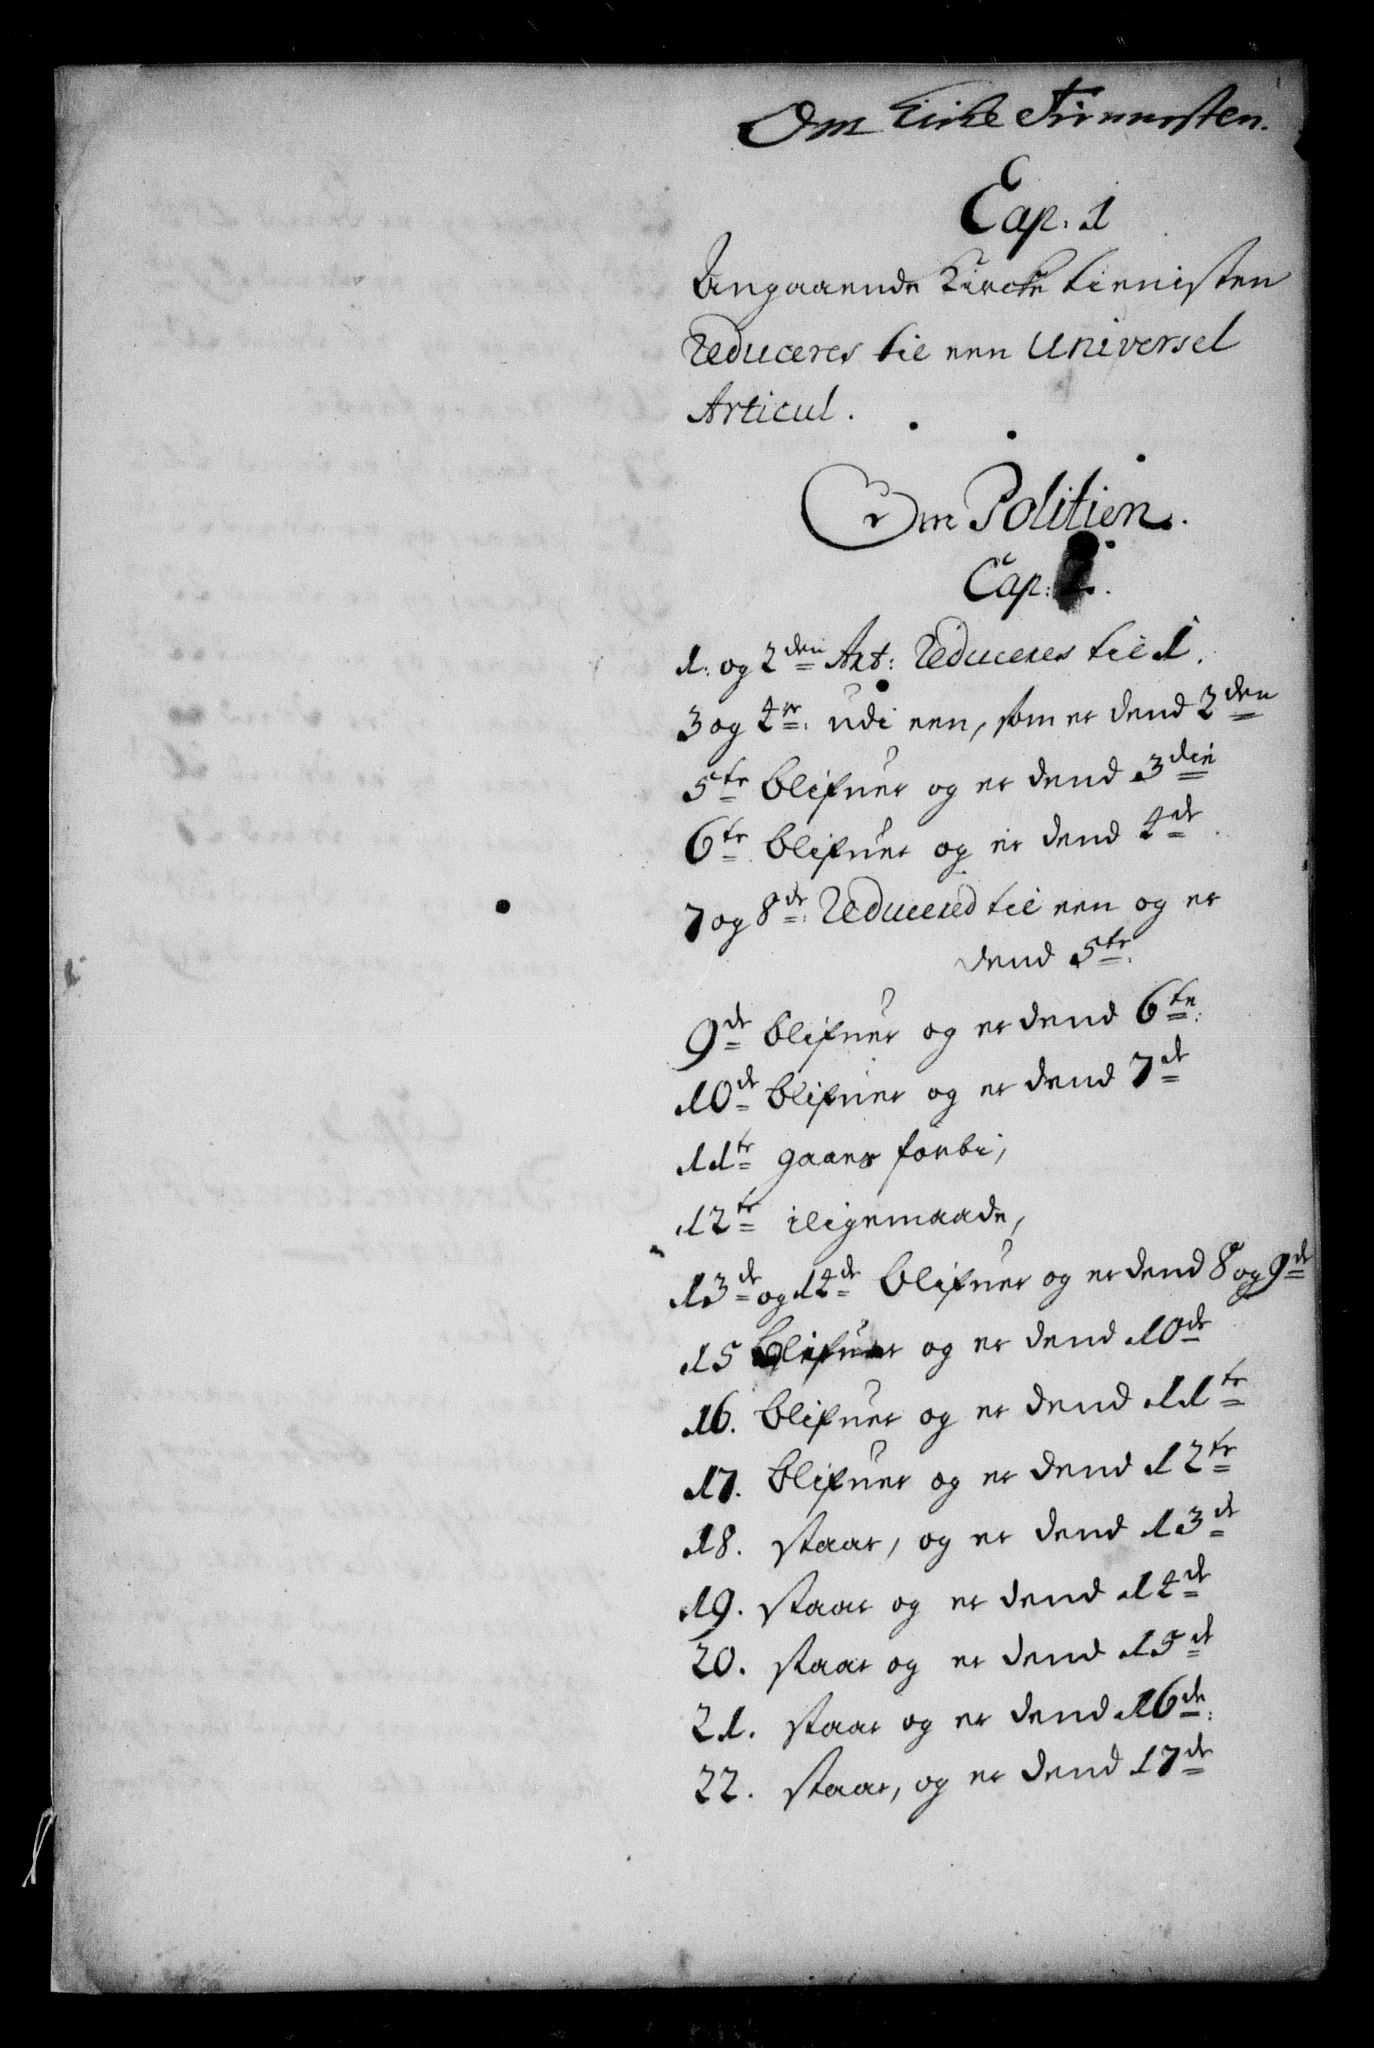 Om Kirke Tiennesten.
Cap: 1
Angaaende Kircke tienisten
Reduceres til een Universel
Articul.
Om Politien.
Cap: 2.
1. og 2den Art: Reduceres til 1.
3 og 4de: udi een, som er dend 2den
5te blifuer og er dend 3die
6te blifuer og er dend 4de
7 og 8de: Reducered til een og er
dend 5te.
9de blifuer og er dend 6te.
10de blifuer og er dend 7de
11te gaaes forbi,
12te iligemaade,
13de og 14de blifuer og er dend 8 og 9de
15 blifuer og er dend 10de
16. blifuer og er dend 11te
17. blifuer og er dend 12te
18. staar, og er dend 13de
19. staar og er dend 14de
20. staar og er dend 15de
21. staar og er dend 16de.
22. staar, og er dend 17de